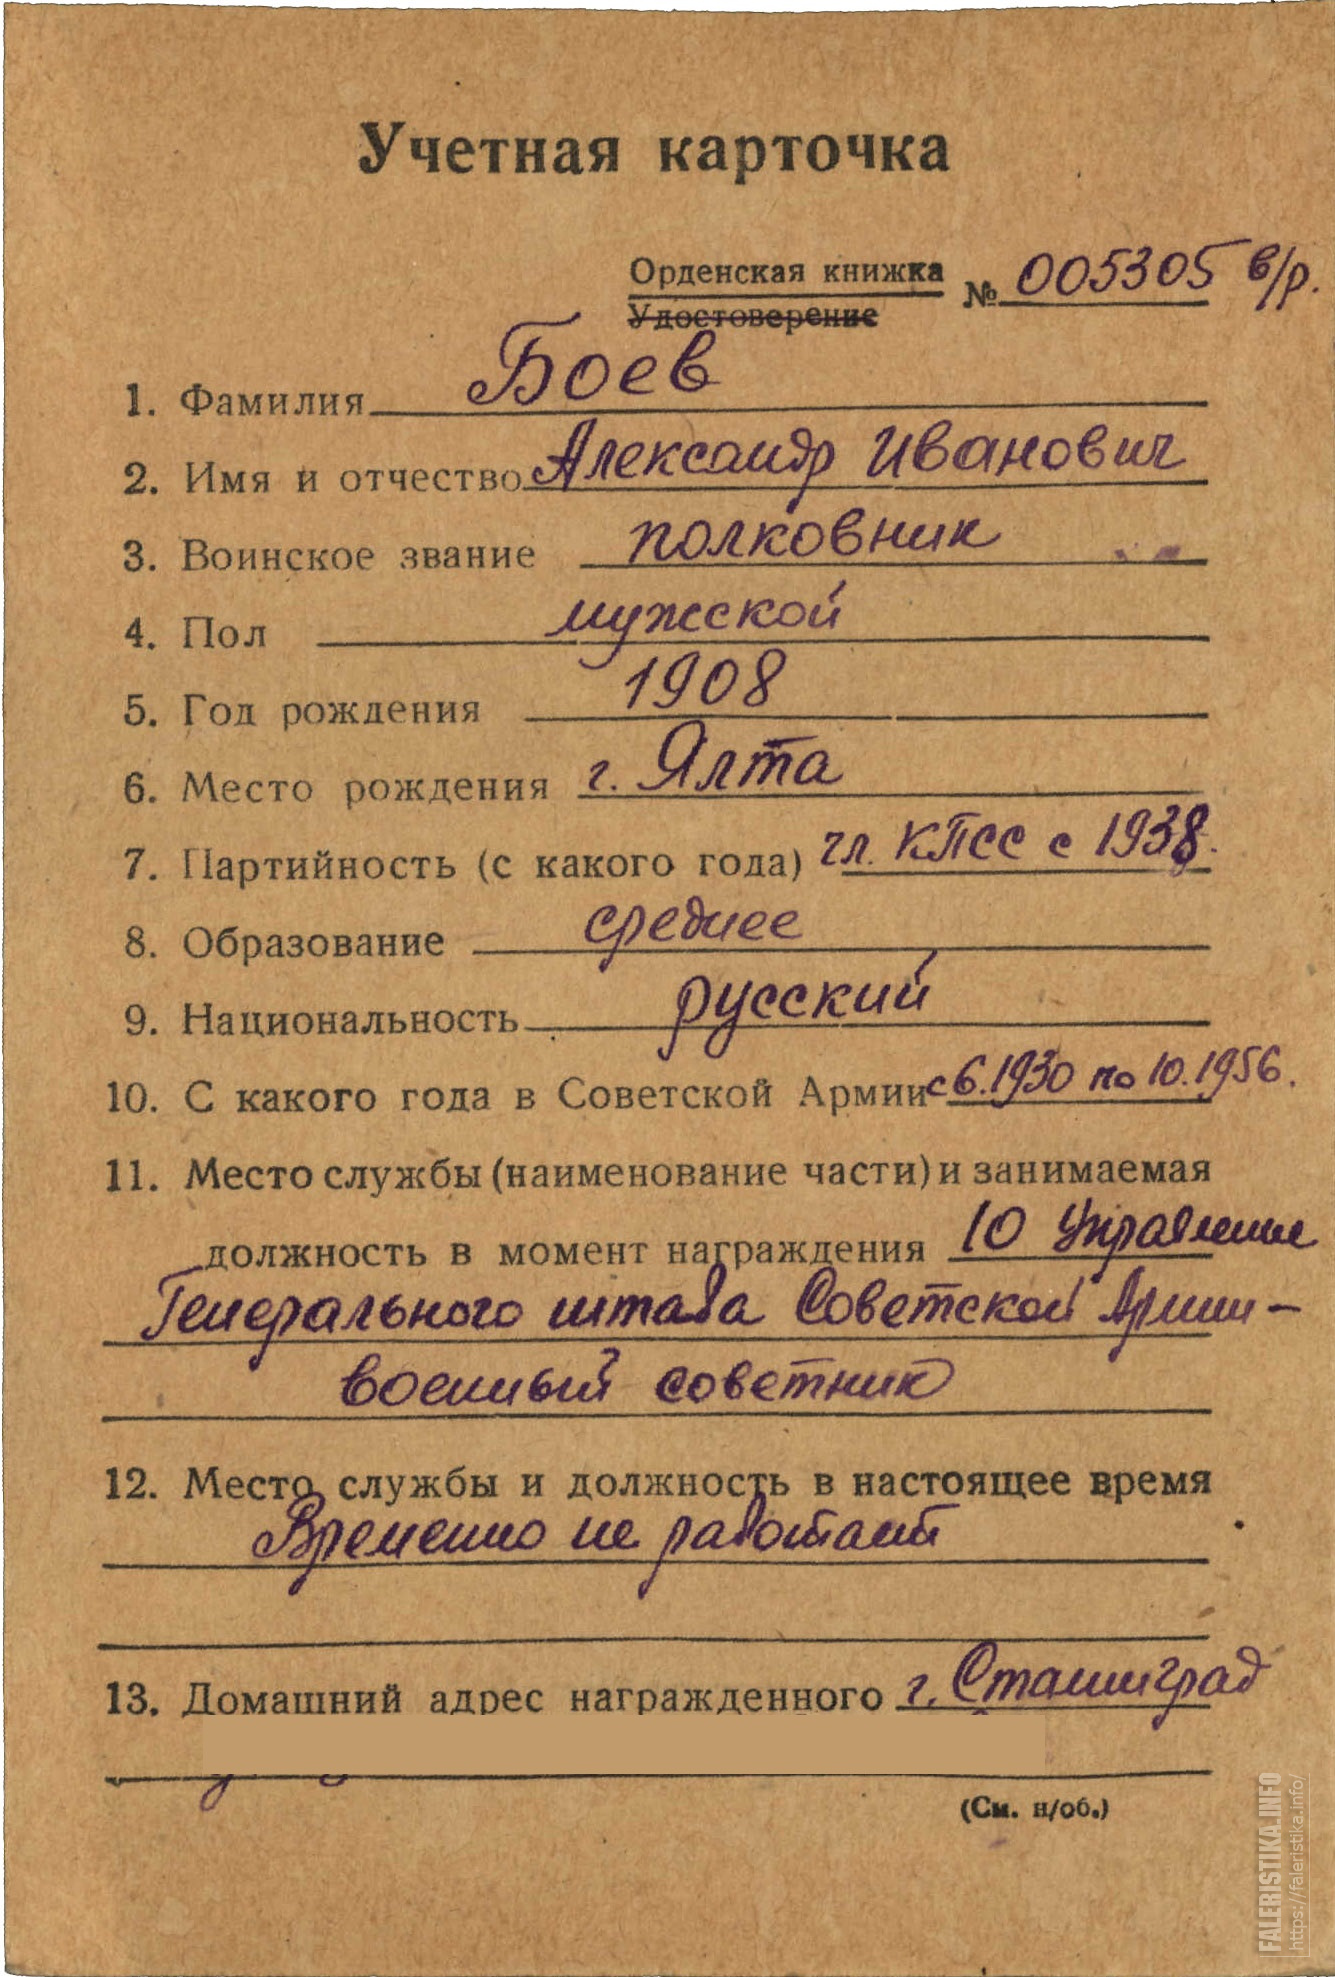 Учетная карточка
Орденская книжка
Удостоверение
№ 005305 в/р.
1. Фамилия Боев
2. Имя и отчество Александр Иванович
3. Воинское звание полковник
4. Пол мужской
5. Год рождения 1908
6. Место рождения г. Ялта
7. Партийность (с какого года) чл. КПСС с 1938.
8. Образование среднее
9. Национальность русский
10. С какого года в Советской Армии с 6.1930 по 10.1956.
11. Место службы (наименование части) и занимаемая
должность в момент награждения 10 Управление
Генерального штаба Советской Армии –
военный советник
12. Место службы и должность в настоящее время
Временно не работает
13. Домашний адрес награжденного г. Сталинград
(См. н/об.)
FALERISTIKA.INFO
https://faleristika.info/